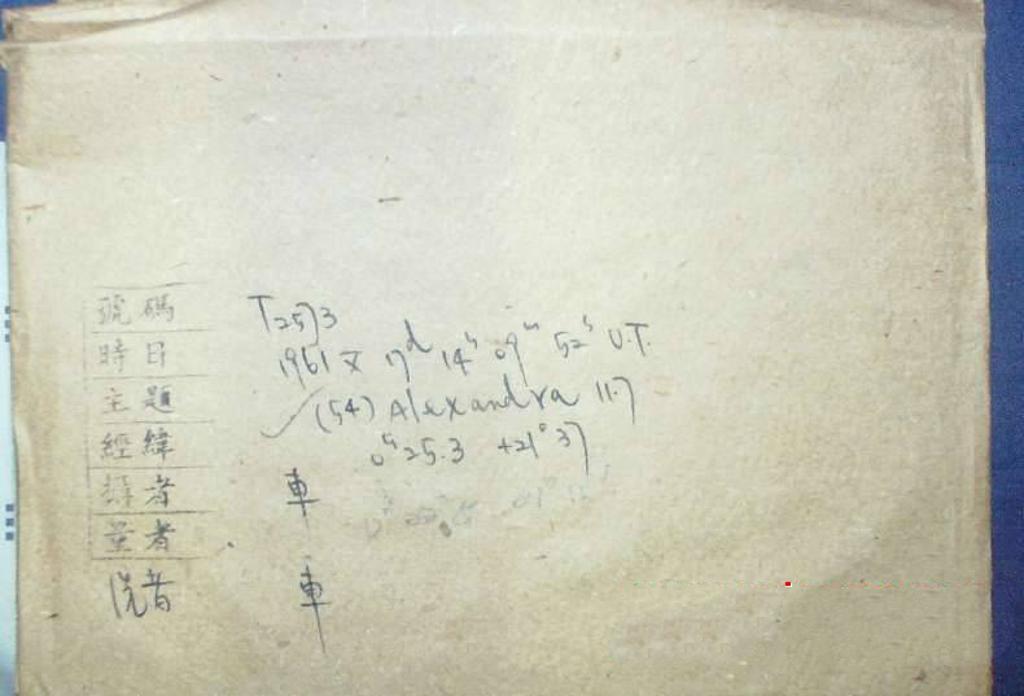 號碼 T2573
時日 1961 X 17d 14h 09m 52s U.T.
主題 ✓ (54) Alexandra 11.7
經緯 0h 25.3 +21° 37
攝者 車
量者
洗者 車